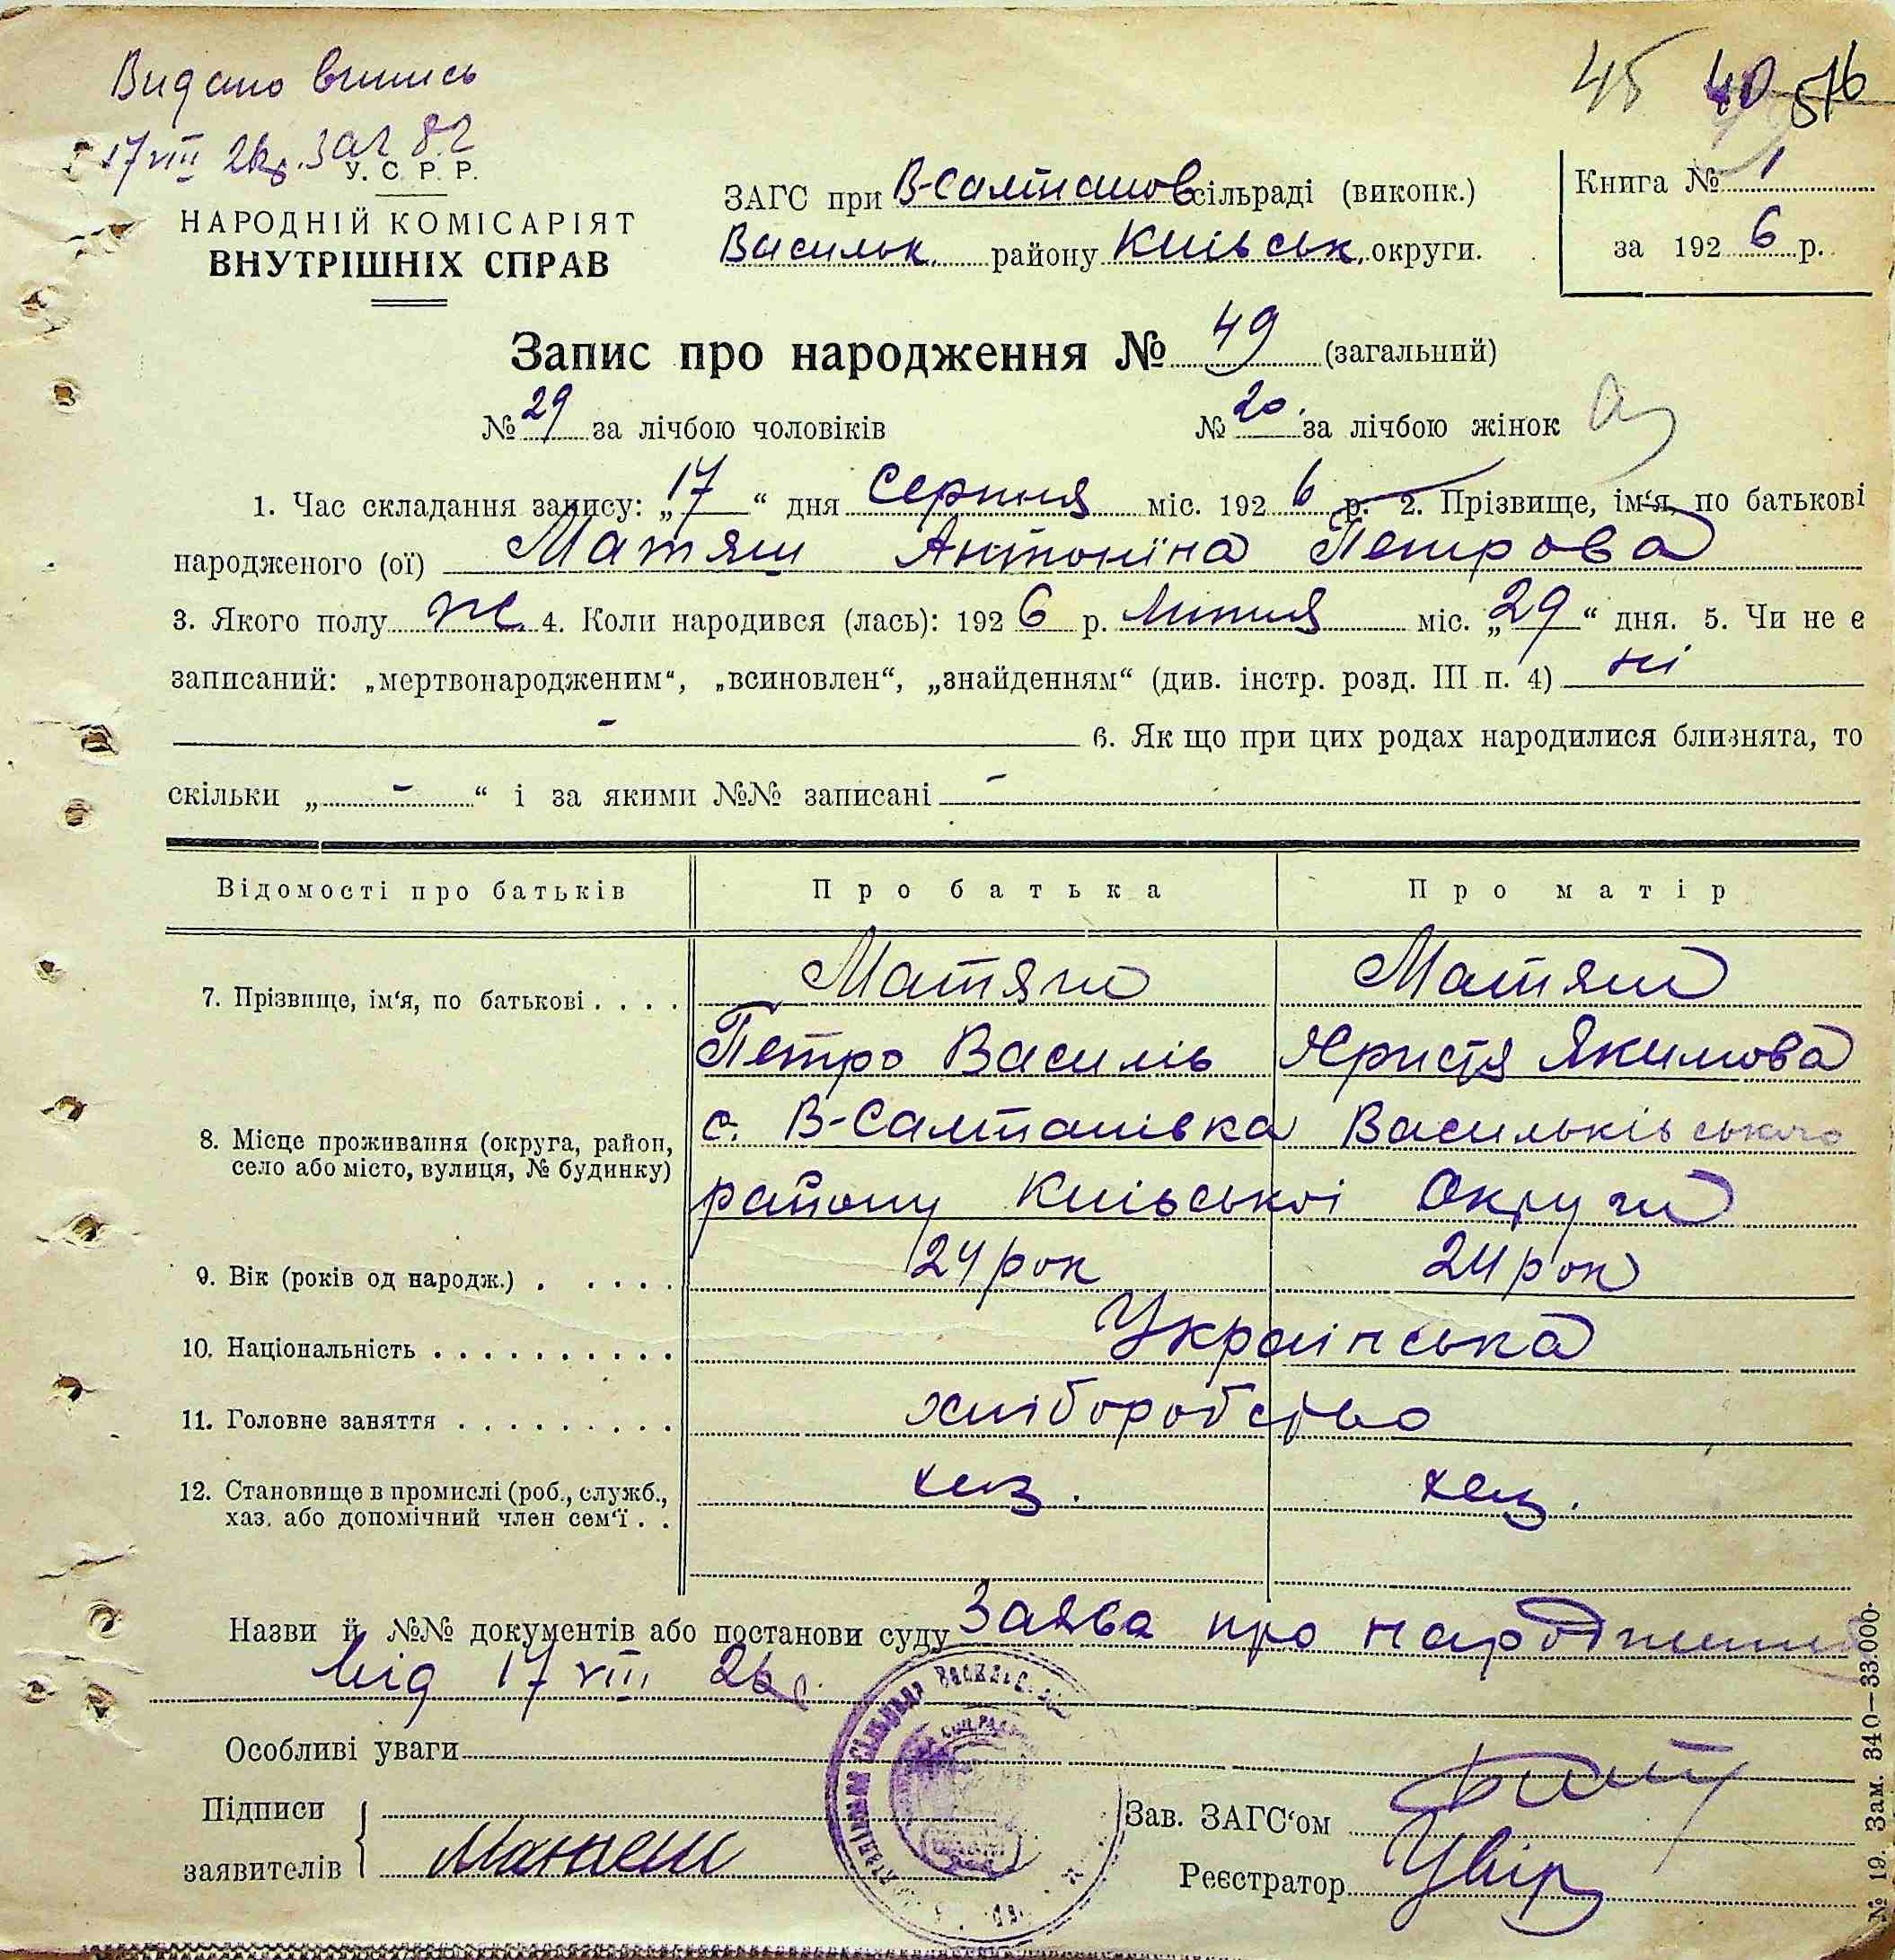 Видано випись
17 VIII 26 р. за № 82
45 40 56
У. С. Р. Р.
НАРОДНІЙ КОМІСАРІЯТ
ВНУТРІШНІХ СПРАВ
ЗАГС при В-Салтанов сільраді (виконк.)
Васильк. району Київськ. округи.
Книга № 1
за 1926 р.
Запис про народження № 49 (загальний)
№ 29 за лічбою чоловіків № 20. за лічбою жінок
1. Час складання запису: „17“ дня Серпня міс. 1926 р. 2. Прізвище, ім‘я, по батькові
народженого (ої) Матяш Антоніна Петрова
3. Якого полу ж. 4. Коли народився (лась): 1926 р. Липня міс. „29“ дня. 5. Чи не є
записаний: „мертвонародженим“, „всиновлен“, „знайденням“ (див. інстр. розд. III п. 4) ні
- 6. Як що при цих родах народилися близнята, то
скільки „-“ і за якими №№ записані -
Відомості про батьків Про батька Про матір
7. Прізвище, ім‘я, по батькові . . . . Матяш Матяш
Петро Василів Христя Якимова
8. Місце проживання (округа, район, с. В-Салтанівка Васильківського
село або місто, вулиця, № будинку) району Київської Округи
9. Вік (років од народж.) . . . . . 24 рок 24 рок
10. Національність . . . . . . . . . . Українська
11. Головне заняття . . . . . . . . . хліборобство
12. Становище в промислі (роб., служб., хаз. хаз.
хаз. або допомічний член сем‘ї . .
Назви й №№ документів або постанови суду Заява про народження
від 17 VIII 26 р.
Особливі уваги
Підписи
заявителів Матяш
Зав. ЗАГС‘ом
Реєстратор
№ 19. Зам. 340—33.000.